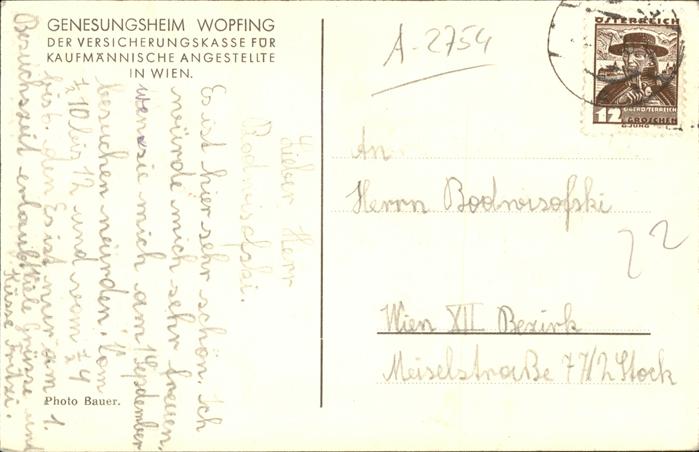 GENESUNGSHEIM WOPFING
DER VERSICHERUNGSKASSE FÜR
KAUFMÄNNISCHE ANGESTELLTE
IN WIEN.
Lieber Herr
Bodwisofski.
Es ist hier sehr schön. Ich
würde mich sehr freuen,
wen sie mich am 1 September
besuchen würden. Vom
½ 10 bis 12 und vom ½ 4
bis 6. den Es ist nur am 1.
Besuchszeit erlaubt. Viele Grüsse und
Küsse Fritzi.
Photo Bauer.
A-2754
ÖSTERREICH
OBERÖSTERREICH
12 GROSCHEN
An
Herrn Bodwisofski
22
Wien XII Bezirk
Meiselstraße 77/2 Stock